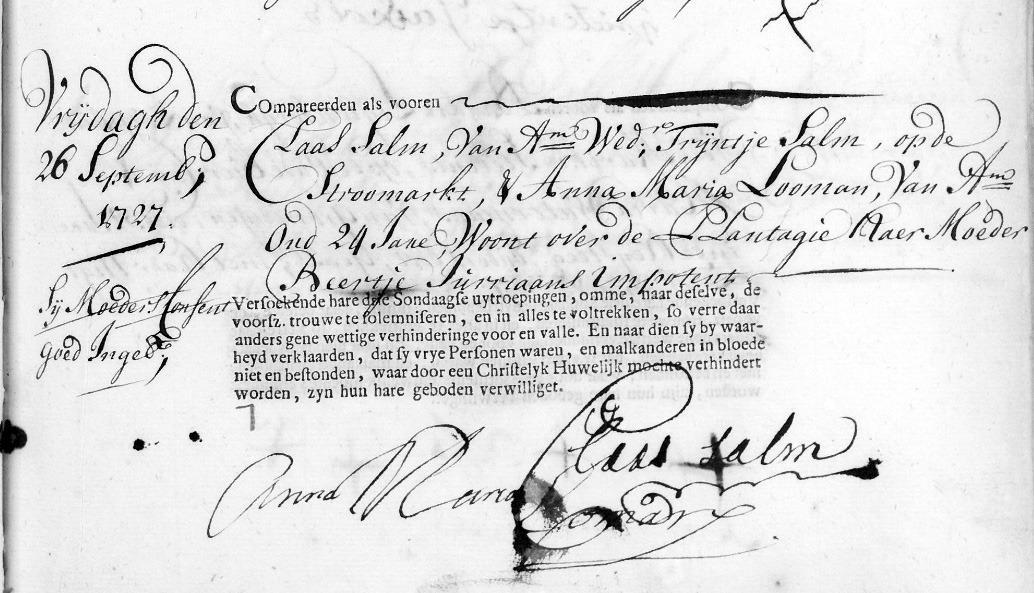 Vrÿdagh den
26 Septemb;
1727.
Sÿ Moeders Consent
goed Ingeb;
COmpareerden als vooren
Claas Salm, Van Am Wed;re Trÿntje Salm, op de
Stroomarkt, & Anna Maria Looman, Van Am
Oud 24 Jare, Woont over de Plantagie Haer Moeder
Beertje Jurriaans Impotent
Versoekende hare drie Sondaagse uytroepingen, omme, naar deselve, de
voorsz. trouwe te solemniseren, en in alles te voltrekken, so verre daar
anders gene wettige verhinderinge voor en valle. En naar dien sy by waar-
heyd verklaarden, dat sy vrye Personen waren, en malkanderen in bloede
niet en bestonden, waar door een Christelyk Huwelijk mochte verhindert
worden, zyn hun hare geboden verwilliget.
Claas Salm
Anna Maria